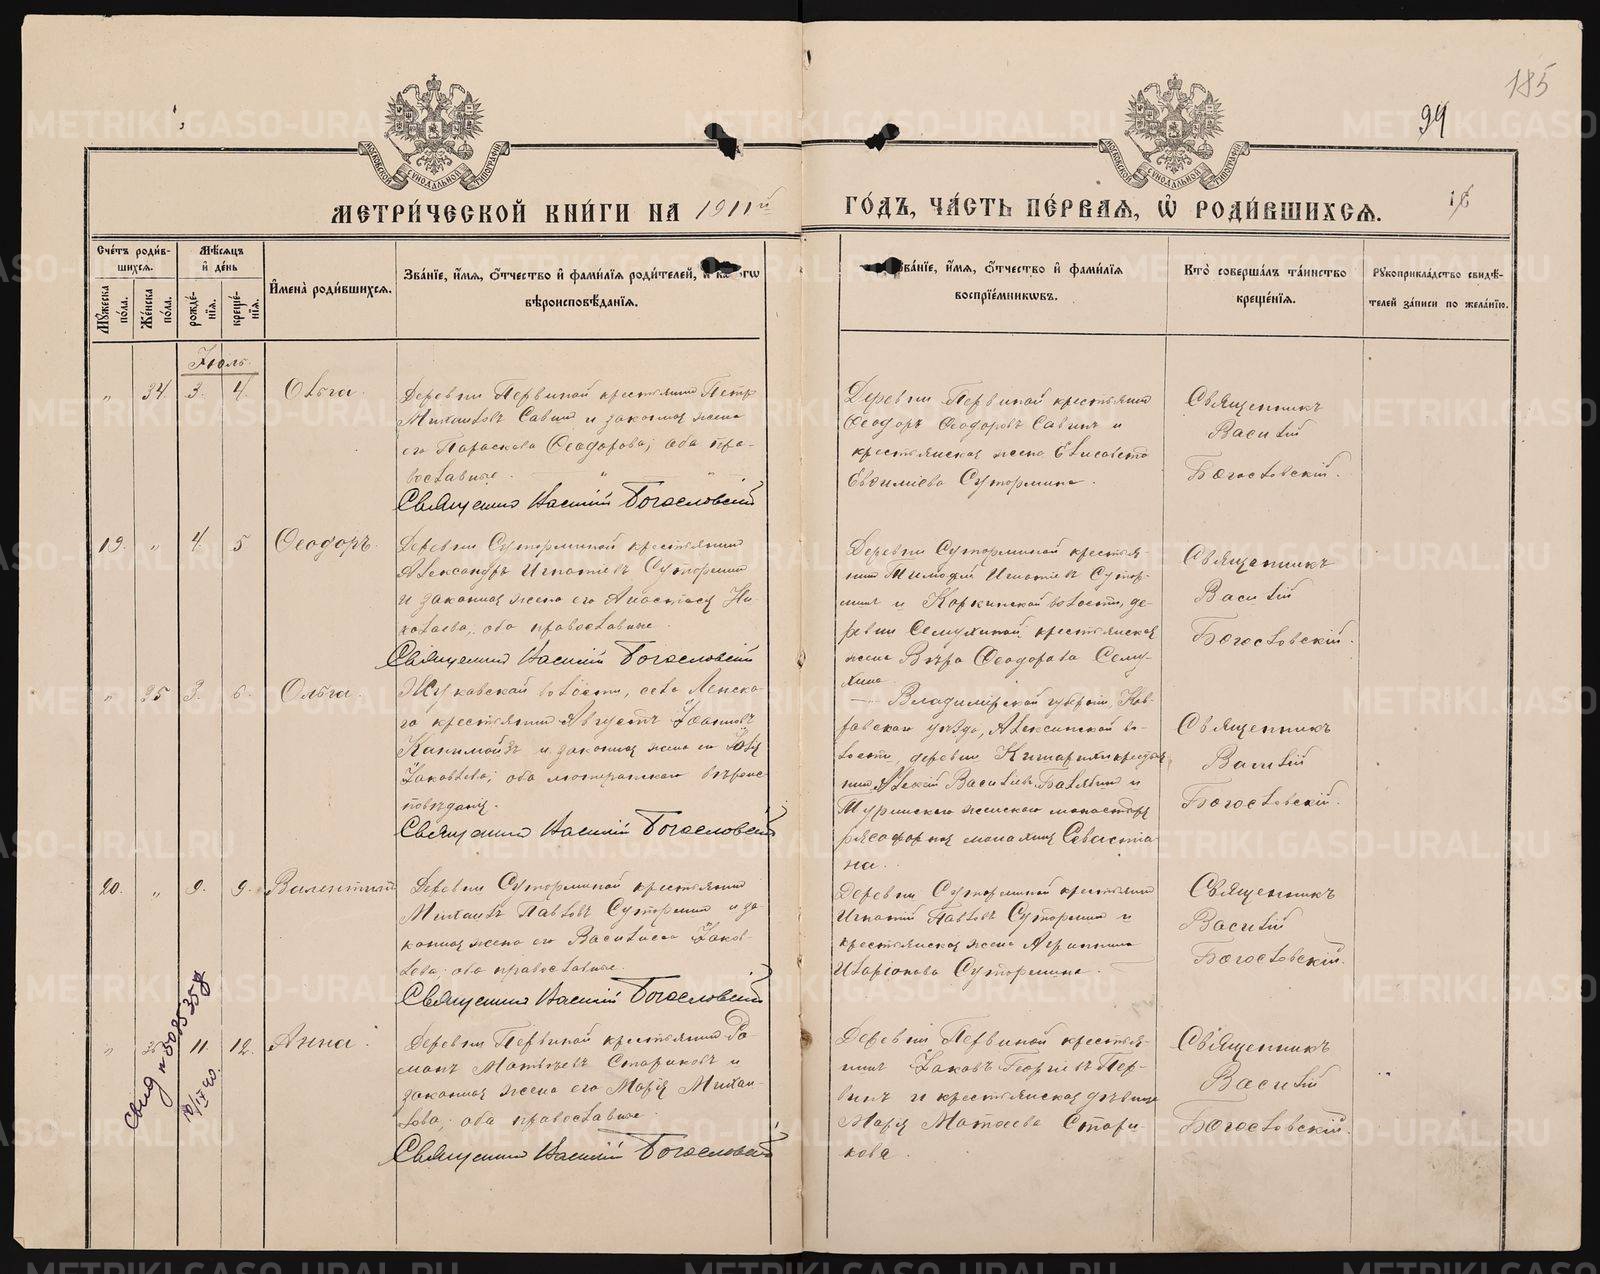 185
94
МОСКОВСКОЙ СУНОДАЛЬНОЙ ТИПОГРАФІИ
МОСКОВСКОЙ СУНОДАЛЬНОЙ ТИПОГРАФІИ
МЕТРИ́ЧЕСКОЙ КНИ́ГИ НА 1911й ГО́ДЪ, ЧА́СТЬ ПЕ́РВАЯ, Ѡ РОДИ́ВШИХСЯ.
Сче́тъ роди́в-
шихся.
Мѣ́сяцъ
и де́нь
Му́жеска по́ла.
Же́нска по́ла.
рожде́-
нїя.
креще́-
нїя.
Имена̀ роди́вшихся.
Зва́нїе, и́мя, о́тчество и фами́лїя роди́телей, и
вѣроисповѣ́данїя.
Зва́нїе, и́мя, о́тчество и фами́лїя
воспрїе́мниковъ.
Кто̀ соверша́лъ та́инство
креще́нїя.
Рꙋкоприкла́дство свидѣ́-
телей за́писи по жела́нїю.
Іюль.
" 34 3. 4. Ольга.
Деревни Первиной крестьянин Петр
Михаиловъ Савин и законная жена
его Параскева Ѳеодорова; оба пра-
вославные.
Священник Василій Богословскій
Деревни Первиной крестьянин
Ѳеодоръ Ѳеодоровъ Савинъ и
крестьянская жена Елисавета
Евѳиміева Сутормина.
Священникъ
Василій
Богословскій.
19. " 4. 5 Ѳеодоръ.
Деревни Суторминой крестьянин
Александръ Игнатіевъ Сутормин
и законная жена его Анастасія Ни-
колаева, оба православные.
Священник Василій Богословскій
Деревни Суторминой крестья-
нин Тимофей Игнатіевъ Сутор-
минъ и Коркинской волости, де-
ревни Семухиной крестьянская
жена Вѣра Ѳеодорова Сему-
хина.
Священникъ
Василій
Богословскій.
" 35 3. 6. Ольга.
Жуковской волости, села Ленска-
го крестьянин Августъ Іоанновъ
и законная жена его
Іаковлева; оба лютеранскаго вѣроис-
повѣданія.
Священник Василій Богословскій
Владимірской губерніи, Ков-
ровскаго уѣзда, Алексинской во-
лости, деревни крестья-
нин Алексій Васильевъ и
Туринскаго женскаго монастыря
рясофорная монахиня Севастіа-
на.
Священникъ
Василій
Богословскій.
20. " 9. 9. Валентинъ
Деревни Суторминой крестьянин
Михаилъ Павловъ Сутормин и за-
конная жена его Василиса Іаков-
лева; оба православные.
Священник Василій Богословскій
Деревни Суторминой крестьянин
Игнатій Павловъ Сутормин и
крестьянская жена Агриппина
Иларіонова Сутормина.
Священникъ
Василій
Богословскій.
" 36 11. 12. Анна.
Деревни Первиной крестьянин Ро-
манъ Матвѣевъ Стариковъ и
законная жена его Марія Михаи-
лова; оба православные.
Священник Василій Богословскій
Деревни Первиной крестья-
нинъ Іаковъ Георгіевъ Пер-
винъ и крестьянская дѣвица
Марія Матѳеева Стари-
кова.
Священникъ
Василій
Богословскій.